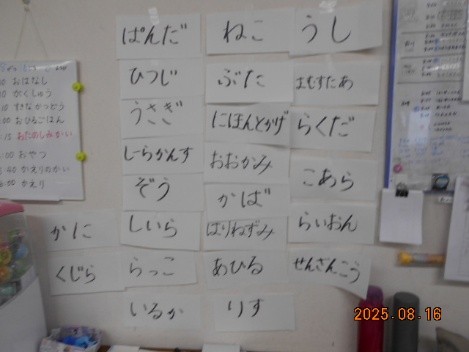 おはなし
がくしゅう
おひるごはん
おたのしみかい
おやつ
かえりのかい
かえり
ぱんだ
ひつじ
うさぎ
しーらかんす
ぞう
しいら
らっこ
いるか
かに
くじら
ねこ
ぶた
にほんとかげ
おおかみ
かば
はりねずみ
あひる
りす
うし
はむすたあ
らくだ
こあら
らいおん
せんざんこう
2025.08.16